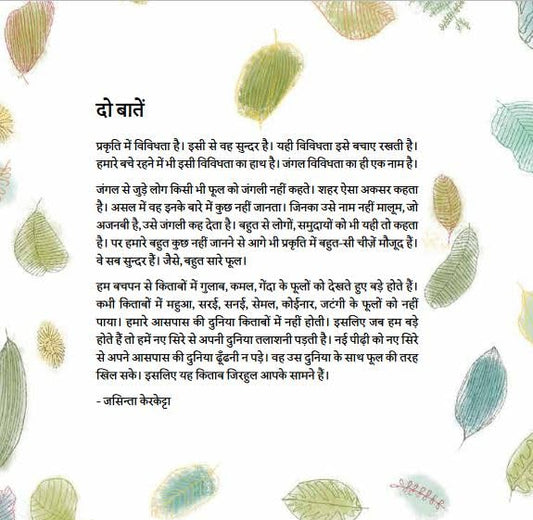 दो बातें
प्रकृति में विविधता है। इसी से वह सुन्दर है। यही विविधता इसे बचाए रखती है।
हमारे बचे रहने में भी इसी विविधता का हाथ है। जंगल विविधता का ही एक नाम है।
जंगल से जुड़े लोग किसी भी फूल को जंगली नहीं कहते। शहर ऐसा अकसर कहता
है। असल में वह इनके बारे में कुछ नहीं जानता। जिनका उसे नाम नहीं मालूम, जो
अजनबी है, उसे जंगली कह देता है। बहुत से लोगों, समुदायों को भी यही तो कहता
है। पर हमारे बहुत कुछ नहीं जानने से आगे भी प्रकृति में बहुत-सी चीज़ें मौजूद हैं।
वे सब सुन्दर हैं। जैसे, बहुत सारे फूल।
हम बचपन से किताबों में गुलाब, कमल, गेंदा के फूलों को देखते हुए बड़े होते हैं।
कभी किताबों में महुआ, सरई, सनई, सेमल, कोईनार, जटंगी के फूलों को नहीं
पाया। हमारे आसपास की दुनिया किताबों में नहीं होती। इसलिए जब हम बड़े
होते हैं तो हमें नए सिरे से अपनी दुनिया तलाशनी पड़ती है। नई पीढ़ी को नए सिरे
से अपने आसपास की दुनिया ढूँढनी न पड़े। वह उस दुनिया के साथ फूल की तरह
खिल सके। इसलिए यह किताब जिरहुल आपके सामने हैं।
- जसिन्ता केरकेट्टा